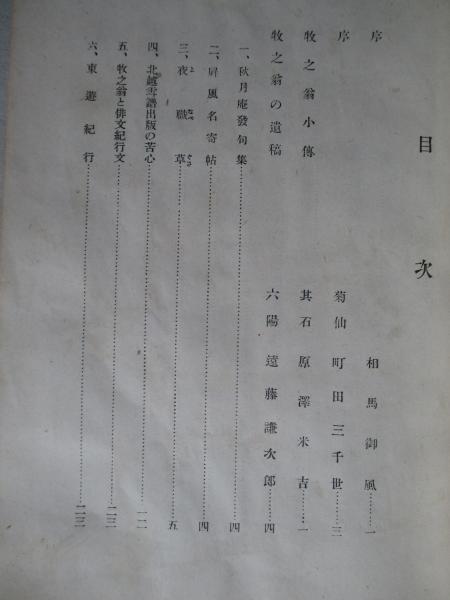 目次
序 相馬御風……一
序 菊仙 町田三千世……三
牧之翁小傳 其石 原澤米吉……一
牧之翁の遺稿 六陽 遠藤謙次郎 四
一、秋月庵發句集……四
二、屏風名寄帖……四
三、夜職草……五
よなべぐさ
四、北越雪譜出版の苦心……一二
五、牧之翁と俳文紀行文……二三
六、東遊紀行……二三